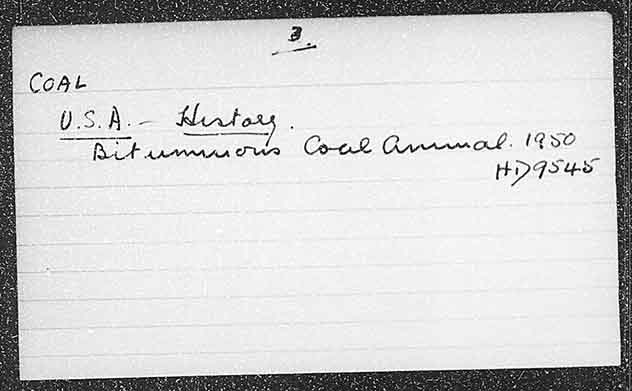 3.
COAL
U.S.A. - History.
Bituminous Coal Annual. 1950
HD9545